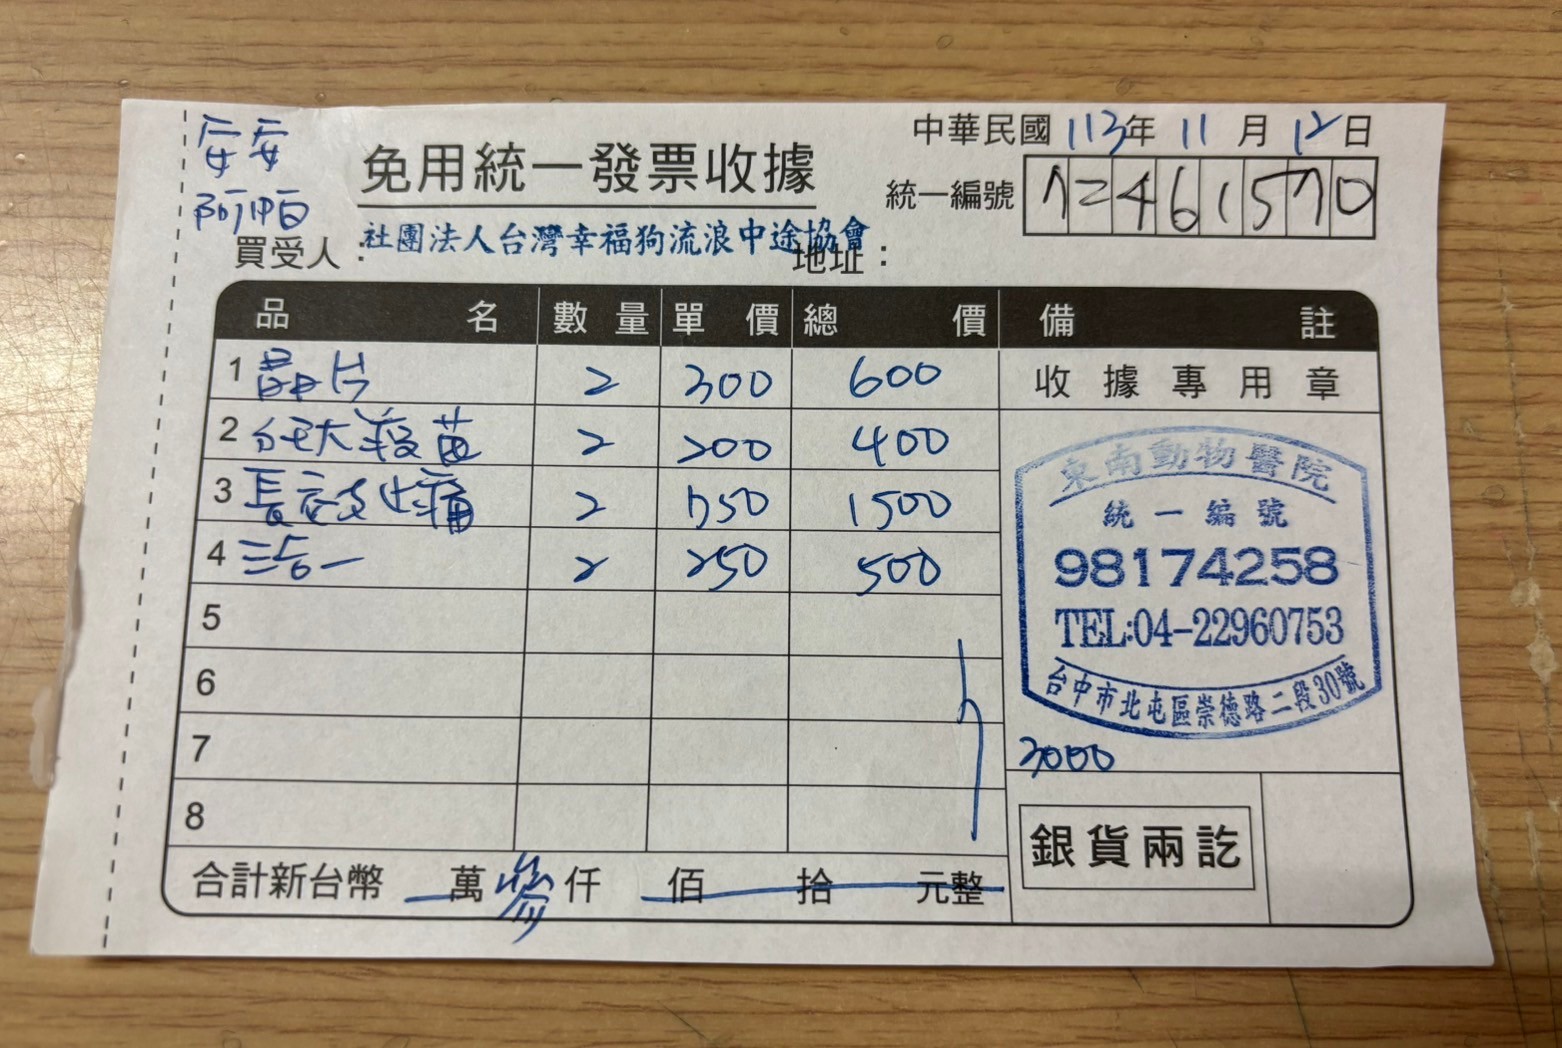 安安
阿帕
免用統一發票收據
中華民國113年11月12日
統一編號 72461570
買受人：社團法人台灣幸福狗流浪中途協會 地址：
品名 數量 單價 總價 備註
1 晶片 2 300 600 收據專用章
2 狂犬疫苗 2 200 400
3 長效止痛 2 750 1500
4 三合一 2 250 500
5
6
7
8
東南動物醫院
統一編號
98174258
TEL:04-22960753
台中市北屯區崇德路二段30號
3000
銀貨兩訖
合計新台幣 萬參仟 佰 拾 元整